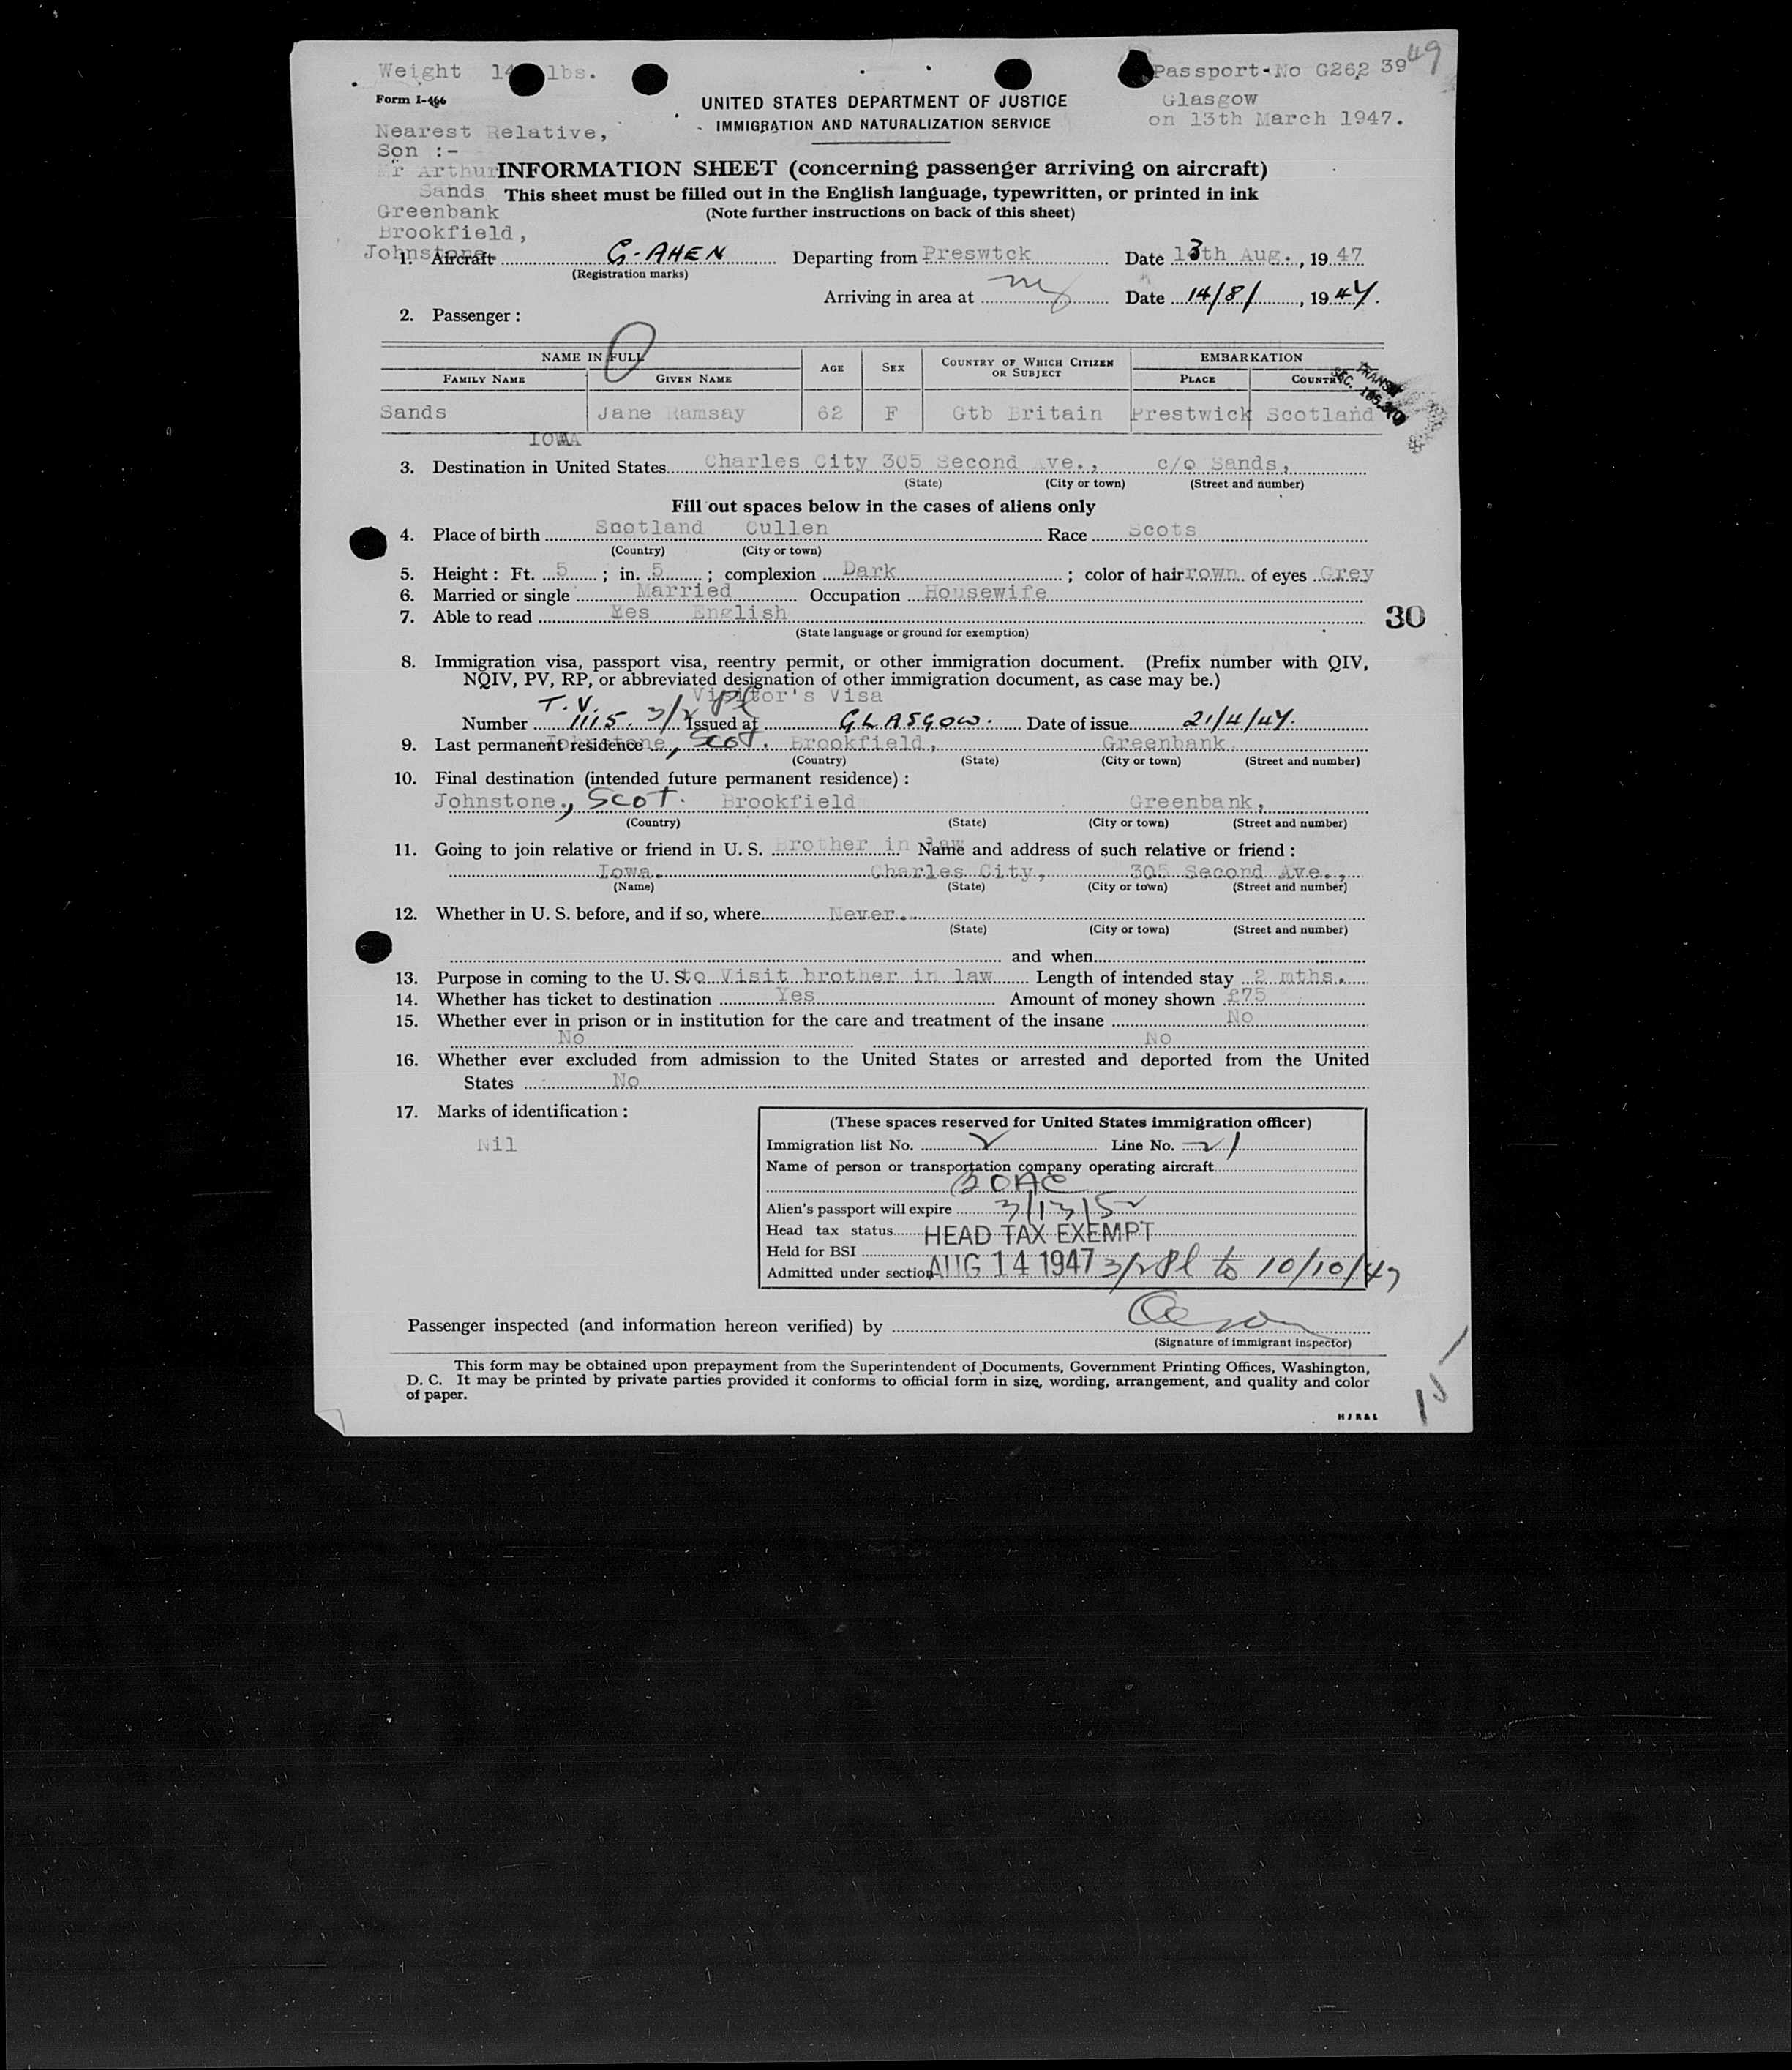 Weight 14 lbs.
Passport No G262 39
49
Form I-466
UNITED STATES DEPARTMENT OF JUSTICE
Glasgow
IMMIGRATION AND NATURALIZATION SERVICE
on 13th March 1947.
Nearest Relative,
Son :-
Mr Arthur
INFORMATION SHEET (concerning passenger arriving on aircraft)
Sands
This sheet must be filled out in the English language, typewritten, or printed in ink
Greenbank
(Note further instructions on back of this sheet)
Brookfield,
Johnstone.
1. Aircraft G-AHEN Departing from Preswtck Date 13th Aug., 1947
(Registration marks)
Arriving in area at ny Date 14/8/, 1947.
2. Passenger :
NAME IN FULL
FAMILY NAME GIVEN NAME AGE SEX COUNTRY OF WHICH CITIZEN OR SUBJECT EMBARKATION
PLACE COUNTRY
TRANSIT
SEC.
Sands Jane Ramsay 62 F Gtb Britain Prestwick Scotland
IOWA
3. Destination in United States Charles City 305 Second Ave., c/o Sands,
(State) (City or town) (Street and number)
Fill out spaces below in the cases of aliens only
4. Place of birth Scotland Cullen Race Scots
(Country) (City or town)
5. Height : Ft. 5 ; in. 5 ; complexion Dark ; color of hair rown of eyes Grey
6. Married or single Married Occupation Housewife
7. Able to read Yes English
(State language or ground for exemption)
30
8. Immigration visa, passport visa, reentry permit, or other immigration document. (Prefix number with QIV,
NQIV, PV, RP, or abbreviated designation of other immigration document, as case may be.)
Visitor's Visa
T.V.
Number 1115. 3/2 Pl Issued at GLASGOW. Date of issue 21/4/47.
9. Last permanent residence Johnstone, Scot. Brookfield, Greenbank.
(Country) (State) (City or town) (Street and number)
10. Final destination (intended future permanent residence) :
Johnstone., Scot. Brookfield Greenbank,
(Country) (State) (City or town) (Street and number)
11. Going to join relative or friend in U. S. Brother in law Name and address of such relative or friend :
Iowa. Charles City, 305 Second Ave.,
(Name) (State) (City or town) (Street and number)
12. Whether in U. S. before, and if so, where Never.
(State) (City or town) (Street and number)
and when
13. Purpose in coming to the U. S. to Visit brother in law Length of intended stay 2 mths.
14. Whether has ticket to destination Yes Amount of money shown £75
15. Whether ever in prison or in institution for the care and treatment of the insane No
No No
16. Whether ever excluded from admission to the United States or arrested and deported from the United
States No
17. Marks of identification :
Nil
(These spaces reserved for United States immigration officer)
Immigration list No. 2 Line No. 21
Name of person or transportation company operating aircraft
BOAC
Alien's passport will expire 3/13/52
Head tax status HEAD TAX EXEMPT
Held for BSI
Admitted under section AUG 14 1947 3/2 Pl to 10/10/47
Passenger inspected (and information hereon verified) by
(Signature of immigrant inspector)
This form may be obtained upon prepayment from the Superintendent of Documents, Government Printing Offices, Washington,
D. C. It may be printed by private parties provided it conforms to official form in size, wording, arrangement, and quality and color
of paper.
H J R & L